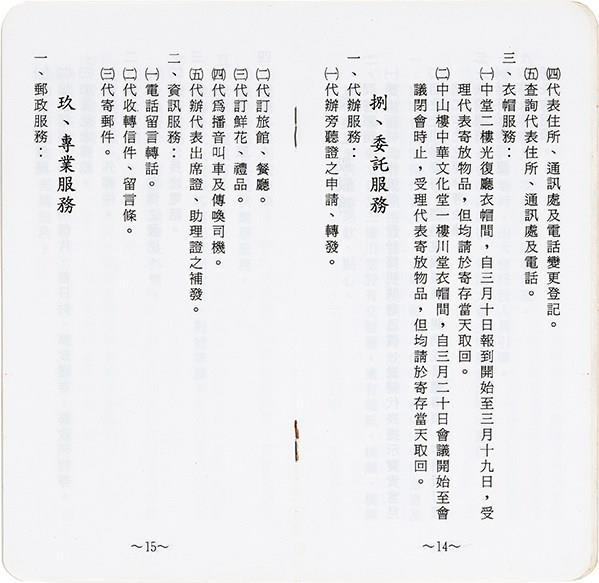 ㈣代表住所、通訊處及電話變更登記。
㈤查詢代表住所、通訊處及電話。
三、衣帽服務：
㈠中堂二樓光復廳衣帽間，自三月十日報到開始至三月十九日，受
理代表寄放物品，但均請於寄存當天取回。
㈡中山樓中華文化堂一樓川堂衣帽間，自三月二十日會議開始至會
議閉會時止，受理代表寄放物品，但均請於寄存當天取回。
捌、委託服務
一、代辦服務：
㈠代辦旁聽證之申請、轉發。
～14～
㈡代訂旅館、餐廳。
㈢代訂鮮花、禮品。
㈣代為播音叫車及傳喚司機。
㈤代辦代表出席證、助理證之補發。
二、資訊服務：
㈠電話留言轉話。
㈡代收轉信件、留言條。
㈢代寄郵件。
玖、專業服務
一、郵政服務：
～15～